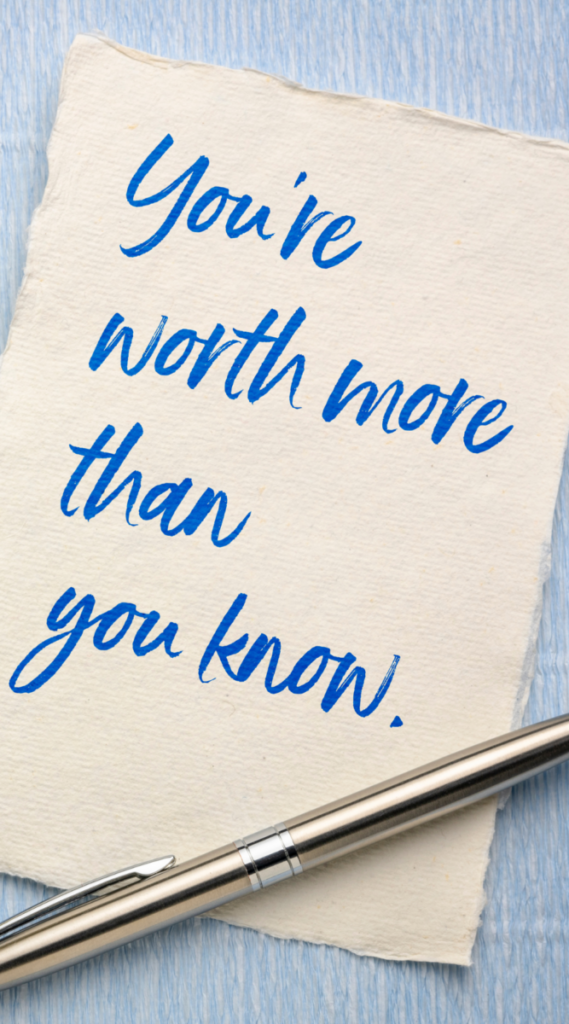 You're
worth more
than
you know.